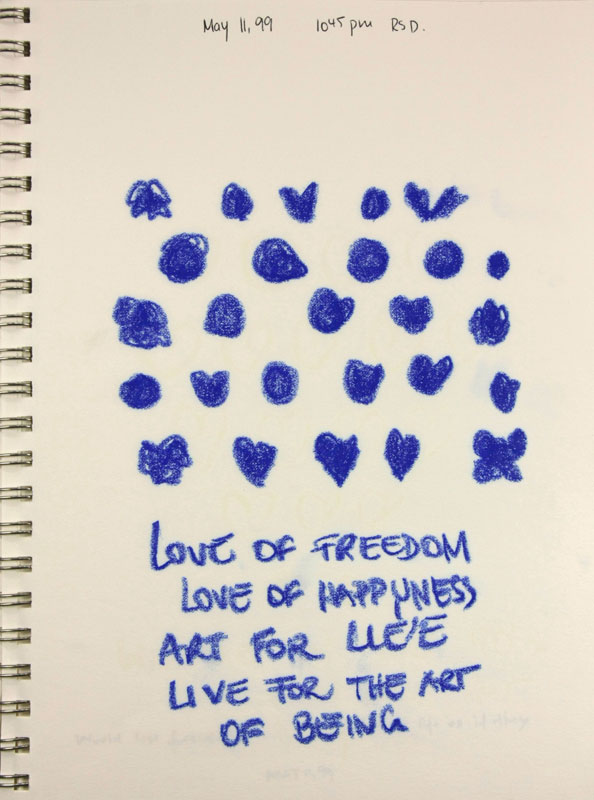 May 11, 99 1045 pm RSD.
LOVE OF FREEDOM
LOVE OF HAPPYNESS
ART FOR
LIVE FOR THE ART
OF BEING